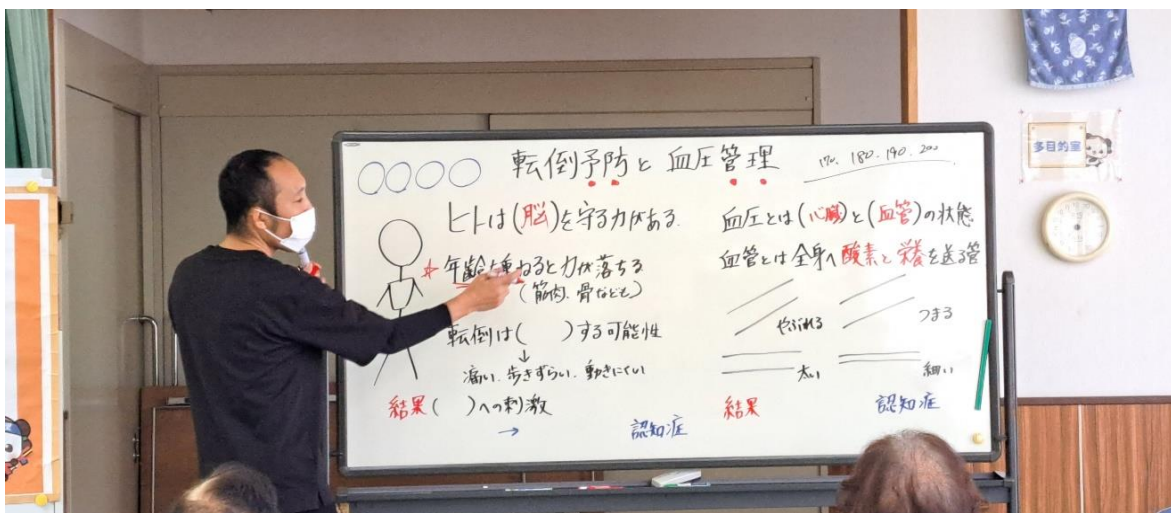 転倒予防と血圧管理
170. 180. 190. 200
ヒトは(脳)を守る力がある
*年齢を重ねると力が落ちる
(筋肉、骨なども)
転倒は( )する可能性
↓
痛い、歩きずらい、動きにくい
結果( )への刺激
→ 認知症
血圧とは(心臓)と(血管)の状態
血管とは全身へ酸素と栄養を送る管
やぶれる
つまる
太い
細い
結果
認知症
多目的室